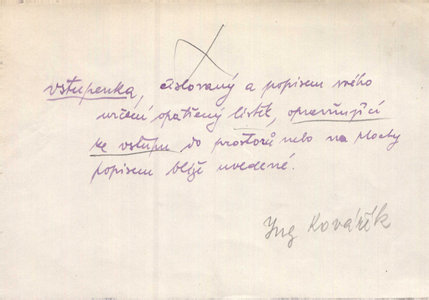 vstupenka, číslovaný a popisem svého
určení opatřený lístek, opravňující
ke vstupu do prostorů nebo na plochy
popisem blíže uvedené.
Ing Kovářík